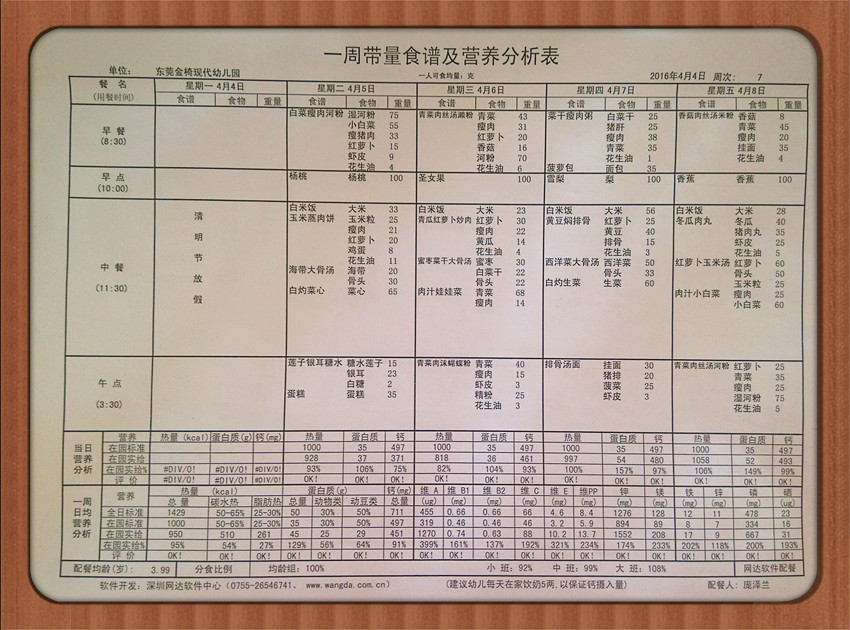 一周带量食谱及营养分析表
单位: 东莞金椅现代幼儿园 一人可食均量: 克 2016年4月4日 周次: 7
餐 名 星期一 4月4日 星期二 4月5日 星期三 4月6日 星期四 4月7日 星期五 4月8日
(用餐时间) 食谱 食物 重量 食谱 食物 重量 食谱 食物 重量 食谱 食物 重量 食谱 食物 重量
早 餐
(8:30)
白菜瘦肉河粉 湿河粉 75
小白菜 55
瘦猪肉 33
红萝卜 15
虾皮 9
花生油 4
青菜肉丝汤濑粉 青菜 43
瘦肉 31
红萝卜 20
香菇 16
河粉 70
花生油 6
菜干瘦肉粥 白菜干 25
猪肝 25
瘦肉 38
青菜 35
花生油 1
菠萝包 面包 35
香菇肉丝汤米粉 香菇 8
青菜 45
瘦肉 20
挂面 35
花生油 4
早 点
(10:00)
杨桃 杨桃 100
圣女果 100
雪梨 梨 100
香蕉 香蕉 100
中 餐
(11:30)
清
明
节
放
假
白米饭 大米 33
玉米蒸肉饼 玉米粒 25
瘦肉 21
红萝卜 20
鸡蛋 8
花生油 11
海带大骨汤 海带 20
骨头 30
白灼菜心 菜心 65
白米饭 大米 23
青瓜红萝卜炒肉 红萝卜 30
瘦肉 22
黄瓜 14
花生油 4
蜜枣菜干大骨汤 蜜枣 30
白菜干 22
骨头 22
肉汁娃娃菜 青菜 68
瘦肉 14
白米饭 大米 56
黄豆焖排骨 红萝卜 25
黄豆 40
排骨 15
花生油 3
西洋菜大骨汤 西洋菜 50
骨头 33
白灼生菜 生菜 60
白米饭 大米 28
冬瓜肉丸 冬瓜 40
猪肉丸 35
虾皮 25
花生油 5
红萝卜玉米汤 红萝卜 60
骨头 50
玉米粒 25
肉汁小白菜 瘦肉 25
小白菜 60
午 点
(3:30)
莲子银耳糖水 糖水莲子 15
银耳 23
白糖 2
蛋糕 蛋糕 35
青菜肉沫蝴蝶粉 青菜 40
瘦肉 15
虾皮 3
精粉 25
花生油 3
排骨汤面 挂面 30
猪排 20
菠菜 25
虾皮 3
青菜肉丝汤河粉 红萝卜 25
青菜 35
瘦肉 25
湿河粉 75
花生油 5
当日营养分析
营养 热量(kcal) 蛋白质(g) 钙(mg) 热量 蛋白质 钙 热量 蛋白质 钙 热量 蛋白质 钙 热量 蛋白质 钙
在园标准 1000 35 497 1000 35 497 1000 35 497 1000 35 497
在园实给 928 37 371 818 36 461 997 54 480 1058 52 493
在园实给% #DIV/0! #DIV/0! #DIV/0! 93% 106% 75% 82% 104% 93% 100% 157% 97% 106% 149% 99%
评 价 OK! OK! OK! OK! OK! OK! OK! OK! OK! OK! OK! OK! OK! OK! OK!
一周日均营养分析
营养 热量 (kcal) 蛋白质(g) 钙(mg) 维 A 维 B1 维 B2 维 C 维 E 维PP 钾 镁 铁 锌 磷 硒
总 量 碳水热 脂肪热 总量 动物类 动豆类 总量 (ug) (mg) (mg) (mg) (mg) (mg) (mg) (mg) (mg) (mg) (mg) (ug)
全日标准 1429 50-65% 25-30% 50 30% 50% 711 455 0.66 0.66 66 4.6 8.4 1276 128 12 11 478 23
在园标准 1000 50-65% 25-30% 35 30% 50% 497 319 0.46 0.46 46 3.2 5.9 894 89 8 7 334 16
在园实给 950 510 261 45 25 29 451 1270 0.74 0.63 88 10.2 13.7 1552 208 17 9 667 31
在园实给% 95% 54% 27% 129% 56% 64% 91% 399% 161% 137% 192% 321% 234% 174% 233% 202% 118% 200% 193%
评 价 OK! OK! OK! OK! OK! OK! OK! OK! OK! OK! OK! OK! OK! OK! OK! OK! OK! OK! OK!
配餐均龄(岁): 3.99 分食比例 均龄组: 100% 小 班: 92% 中 班: 99% 大 班: 108% 网达软件配餐
软件开发: 深圳网达软件中心 (0755-26546741、 www.wangda.com.cn) (建议幼儿每天在家饮奶5两,以保证钙摄入量) 配餐人: 庞泽兰